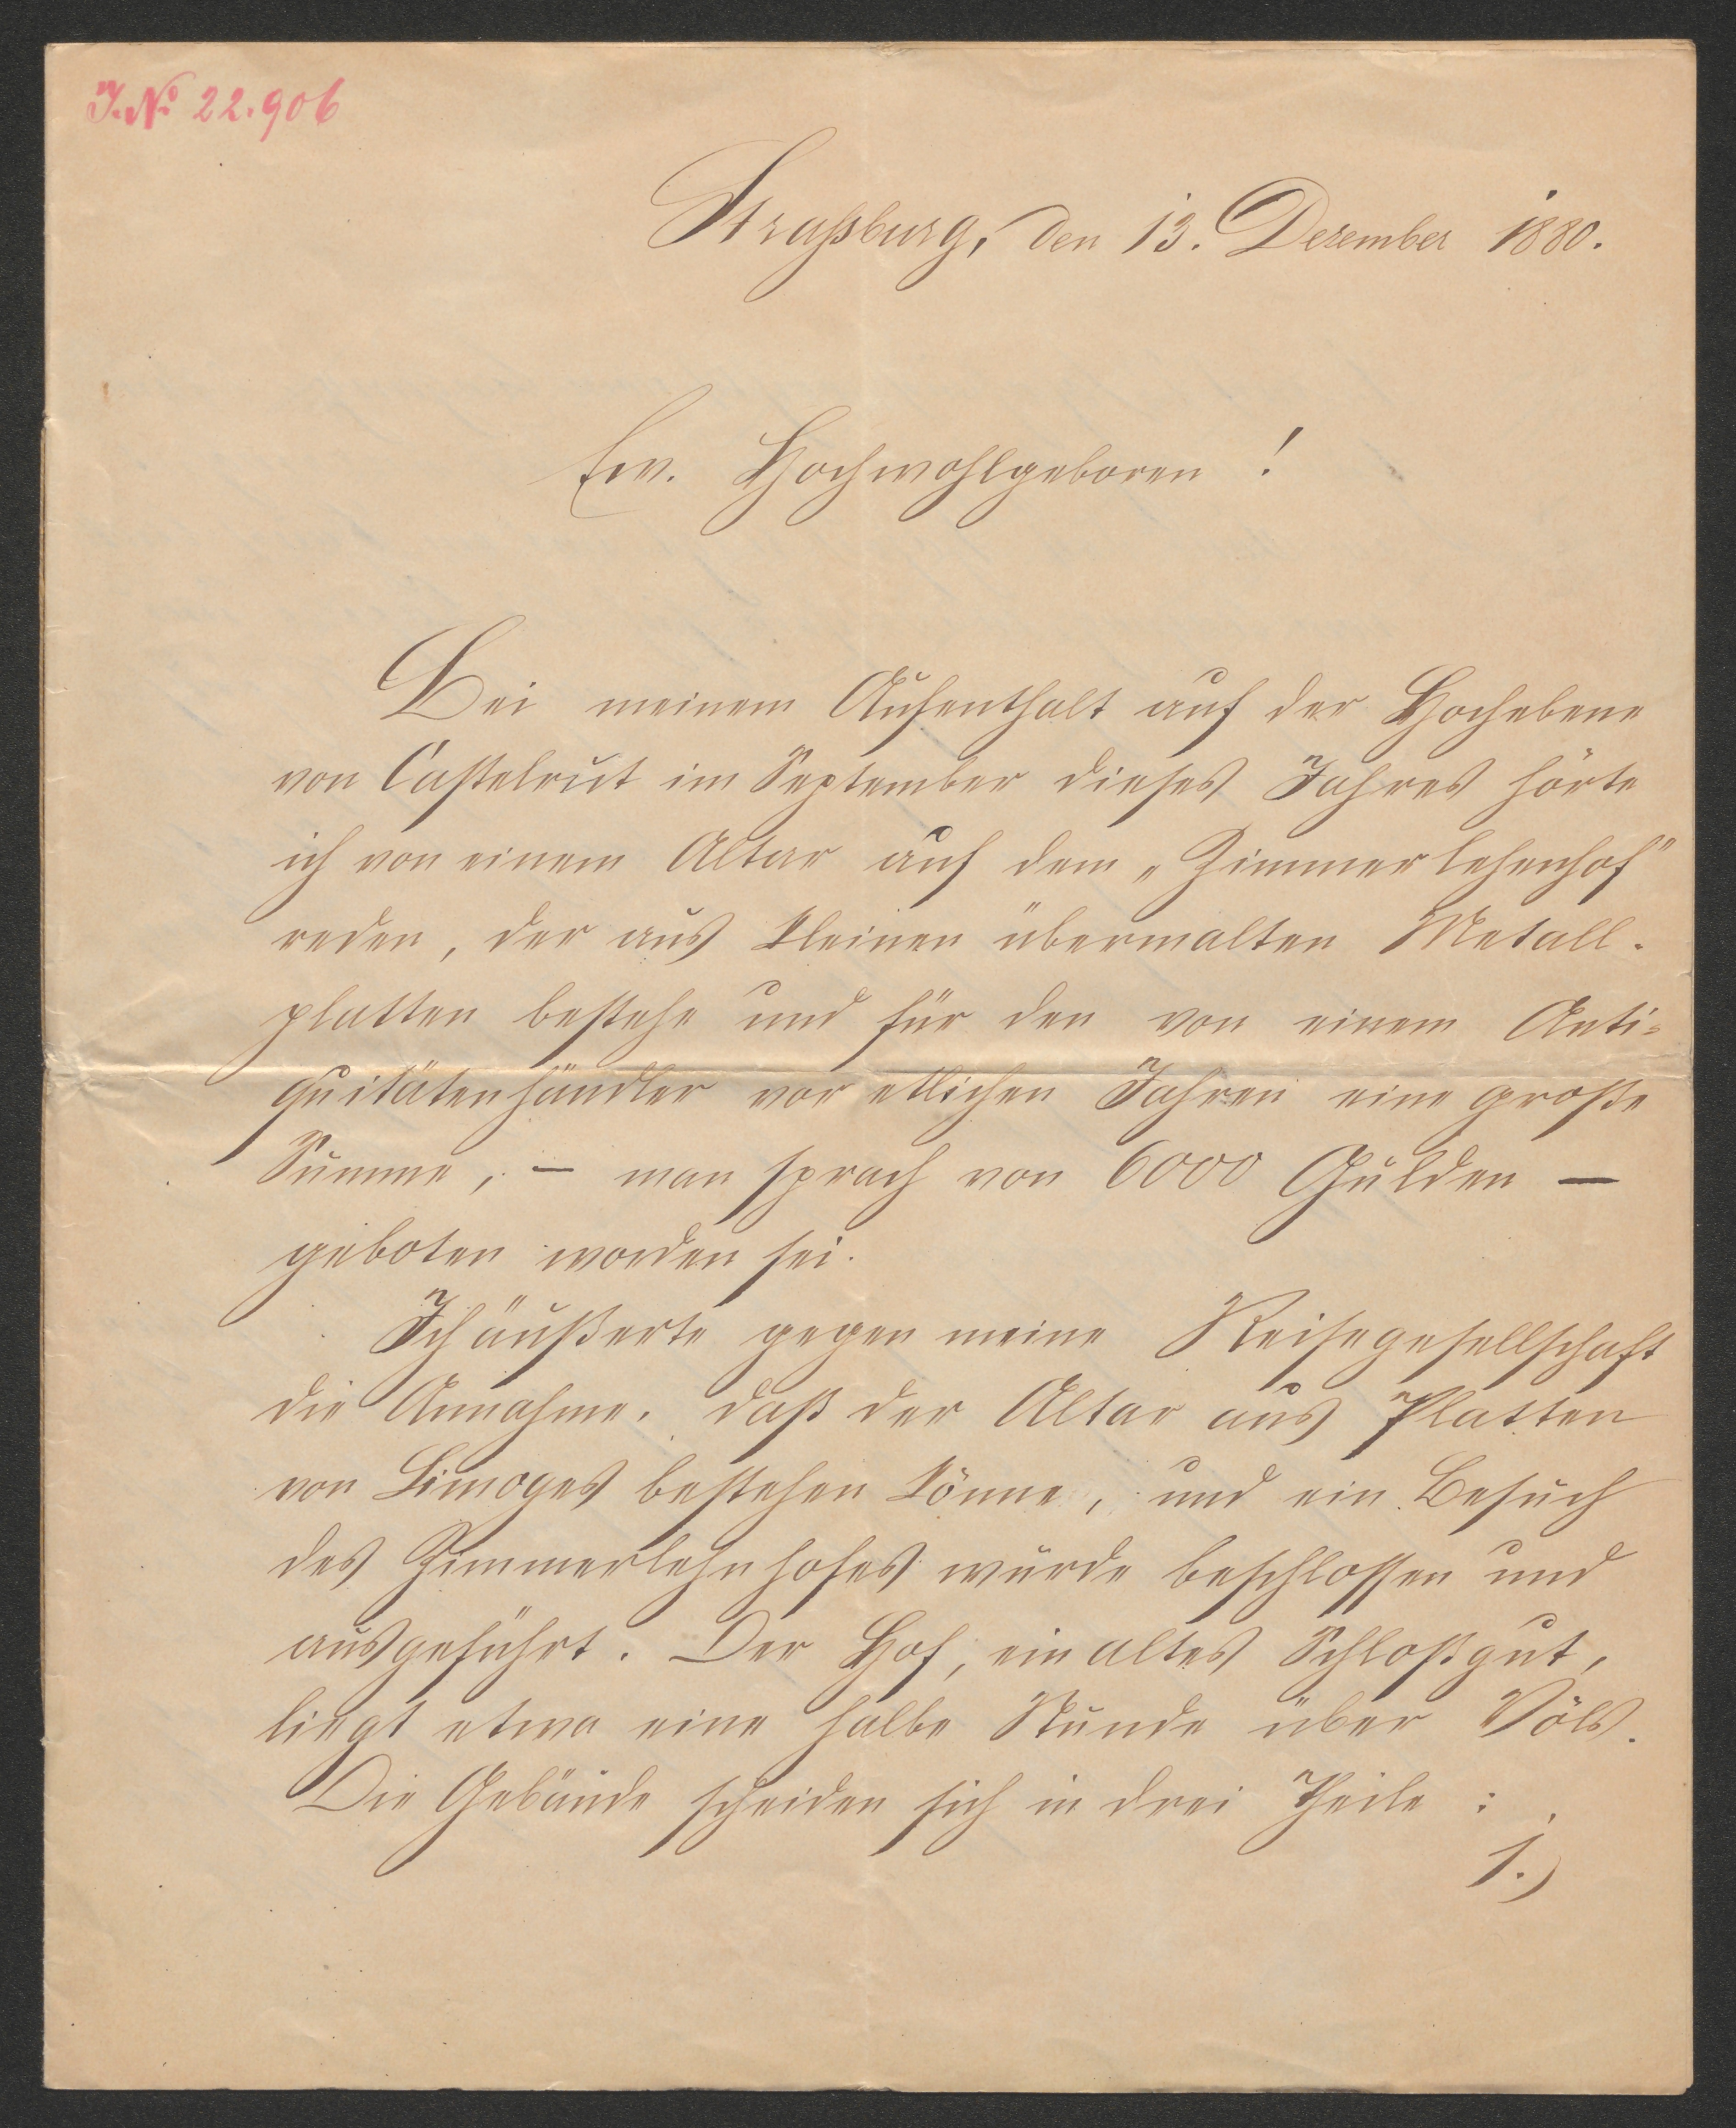 J.N° 22.906
Straßburg, den 13. Dezember 1880.
Ew. Hochwohlgeboren!
Bei meinem Aufenthalt auf der Hochebene
von Castelrut im September dieses Jahres hörte
ich von einem Altar auf dem „Zimmerlehenhof"
reden, der aus kleinen übermalten Metall-
platten bestehe und für den von einem Anti-
quitätenhändler vor etlichen Jahren eine große
Summe, – man sprach von 6000 Gulden –
geboten worden sei.
Ich äußerte gegen meine Reisegesellschaft
die Annahme, daß der Altar aus Platten
von Limoges bestehen könne, und ein Besuch
des Zimmerlehnhofes wurde beschlossen und
ausgeführt. Der Hof, ein altes Schloßgut,
liegt etwa eine halbe Stunde über Völs.
Die Gebäude scheiden sich in drei Theile:
1.)